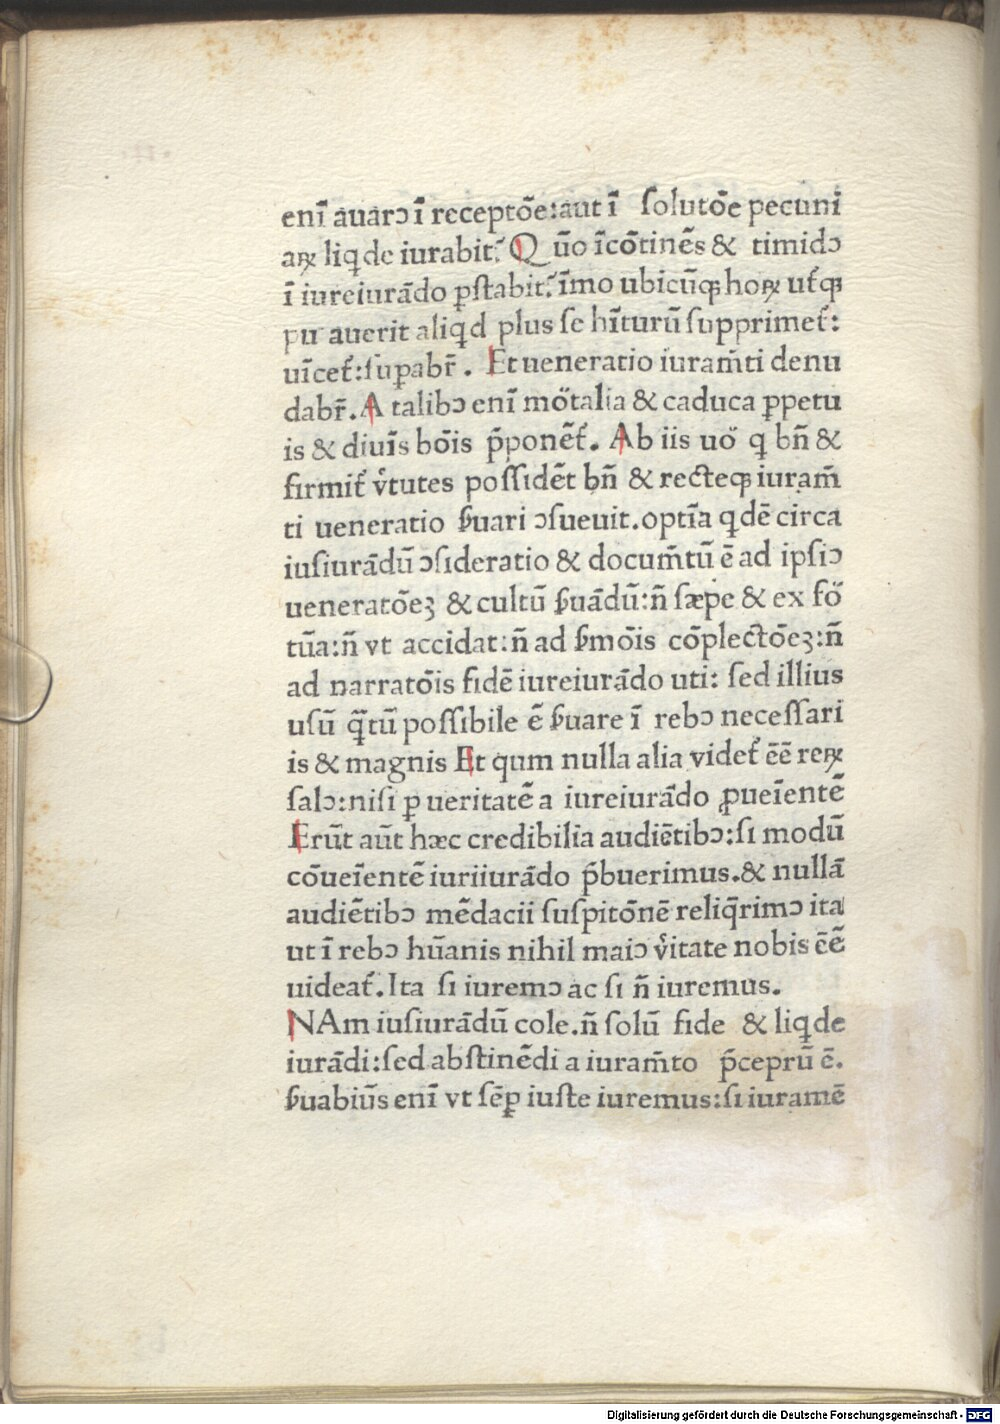 enī auarↄ ī receptōe:aut ī ſolutōe pecuni
aꝝ liq̨de iurabit? Quō īcōtinēs & timidↄ
ī iureiurādo p̱ſtabit? īmo ubicūqꝫ hoꝝ utꝭqꝫ
pu auerit aliq̨d plus ſe hīturū ſupprimet᷑:
uīcet᷑:ſup̱abr̄. Et ueneratio iuram̄ti denu
dabr̄. A talibↄ enī mōtalia & caduca ꝑpetu
is & diuīs bōis p̄ponēt᷑. Ab iis uō q bn̄ &
firmit᷑ v̓tutes poſſidēt bn̄ & recteqꝫ iuram̄
ti ueneratio ẜuari ↄſueuit.optīa q̨dē circa
iuſiurādū ↄſideratio & docum̄tū ē ad ipſiↄ
ueneratōeꝫ & cultū ẜuādū:n̄ ſæpe & ex fō
tūa:n̄ vt accidat:n̄ ad ẜmōis cōplectōeꝫ:n̄
ad narratōis fidē iureiurādo uti: ſed illius
uſū q̄tū poſſibile ē ẜuare ī rebↄ neceſſari
is & magnis Et qum nulla alia videt᷑ ēē reꝝ
ſalↄ:niſi ꝑ ueritatē a iureiurādo ꝓueīentē
Erūt aūt hæc credibilia audiētibↄ:ſi modū
cōueīentē iuriiurādo p̄buerimus.& nullā
audiētibↄ mēdacii ſuſpitōnē reliq̄rimↄ ita
ut ī rebↄ hūanis nihil maiↄ v̓itate nobis ēē
uideat᷑. Ita ſi iuremↄ ac ſi n̄ iuremus.
NAm iuſiurādū cole.n̄ ſolū fide & liq̨de
iurādi:ſed abſtinēdi a iuram̄to p̄ceprū ē.
ẜuabiūs enī vt ſēꝑ iuſte iuremus:ſi iuramē
Digitalisierung gefördert durch die Deutsche Forschungsgemeinschaft - DFG